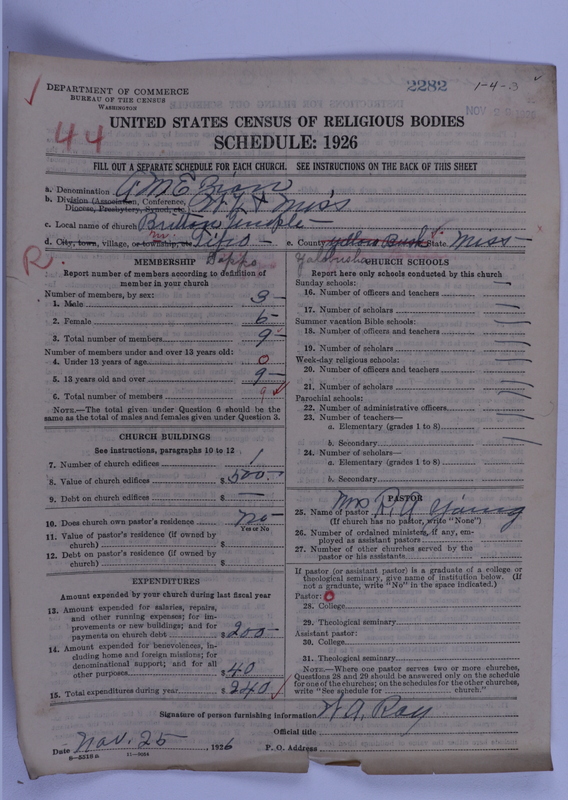 DEPARTMENT OF COMMERCE
BUREAU OF THE CENSUS
WASHINGTON
2282
1-4-3
NOV
44
UNITED STATES CENSUS OF RELIGIOUS BODIES
SCHEDULE: 1926
FILL OUT A SEPARATE SCHEDULE FOR EACH CHURCH. SEE INSTRUCTIONS ON THE BACK OF THIS SHEET
a. Denomination A. M. E. Zion
b. Division (Association, Conference, Diocese, Presbytery, Synod, etc.) Miss
c. Local name of church Temple
d. City, town, village, or township, etc.
e. County Yellow Bush State Miss
R.
Yalobusha
MEMBERSHIP
Report number of members according to definition of member in your church
Number of members, by sex:
1. Male 3
2. Female 6
3. Total number of members 9
Number of members under and over 13 years old:
4. Under 13 years of age 0
5. 13 years old and over 9
6. Total number of members 9
NOTE.—The total given under Question 6 should be the same as the total of males and females given under Question 3.
CHURCH BUILDINGS
See instructions, paragraphs 10 to 12
7. Number of church edifices 1
8. Value of church edifices $ 500
9. Debt on church edifices $ —
10. Does church own pastor's residence no
Yes or No
11. Value of pastor's residence (if owned by church) $
12. Debt on pastor's residence (if owned by church) $
EXPENDITURES
Amount expended by your church during last fiscal year
13. Amount expended for salaries, repairs, and other running expenses; for improvements or new buildings; and for payments on church debt $ 200
14. Amount expended for benevolences, including home and foreign missions; for denominational support; and for all other purposes $ 40
15. Total expenditures during year $ 240
CHURCH SCHOOLS
Report here only schools conducted by this church
Sunday schools:
16. Number of officers and teachers —
17. Number of scholars —
Summer vacation Bible schools:
18. Number of officers and teachers —
19. Number of scholars —
Week-day religious schools:
20. Number of officers and teachers —
21. Number of scholars —
Parochial schools:
22. Number of administrative officers —
23. Number of teachers—
a. Elementary (grades 1 to 8) —
b. Secondary —
24. Number of scholars—
a. Elementary (grades 1 to 8)
b. Secondary
PASTOR
25. Name of pastor Mrs R. A. Young
(If church has no pastor, write "None")
26. Number of ordained ministers, if any, employed as assistant pastors
27. Number of other churches served by the pastor or his assistants
If pastor (or assistant pastor) is a graduate of a college or theological seminary, give name of institution below. (If not a graduate, write "No" in the space indicated.)
Pastor: 0
28. College
29. Theological seminary
Assistant pastor:
30. College
31. Theological seminary
NOTE.—Where one pastor serves two or more churches, Questions 28 and 29 should be answered only on the schedule for one of the churches; on the schedules for the other churches, write "See schedule for church."
Signature of person furnishing information A. Ray
Official title
Date Nov. 25, 1926
P. O. Address